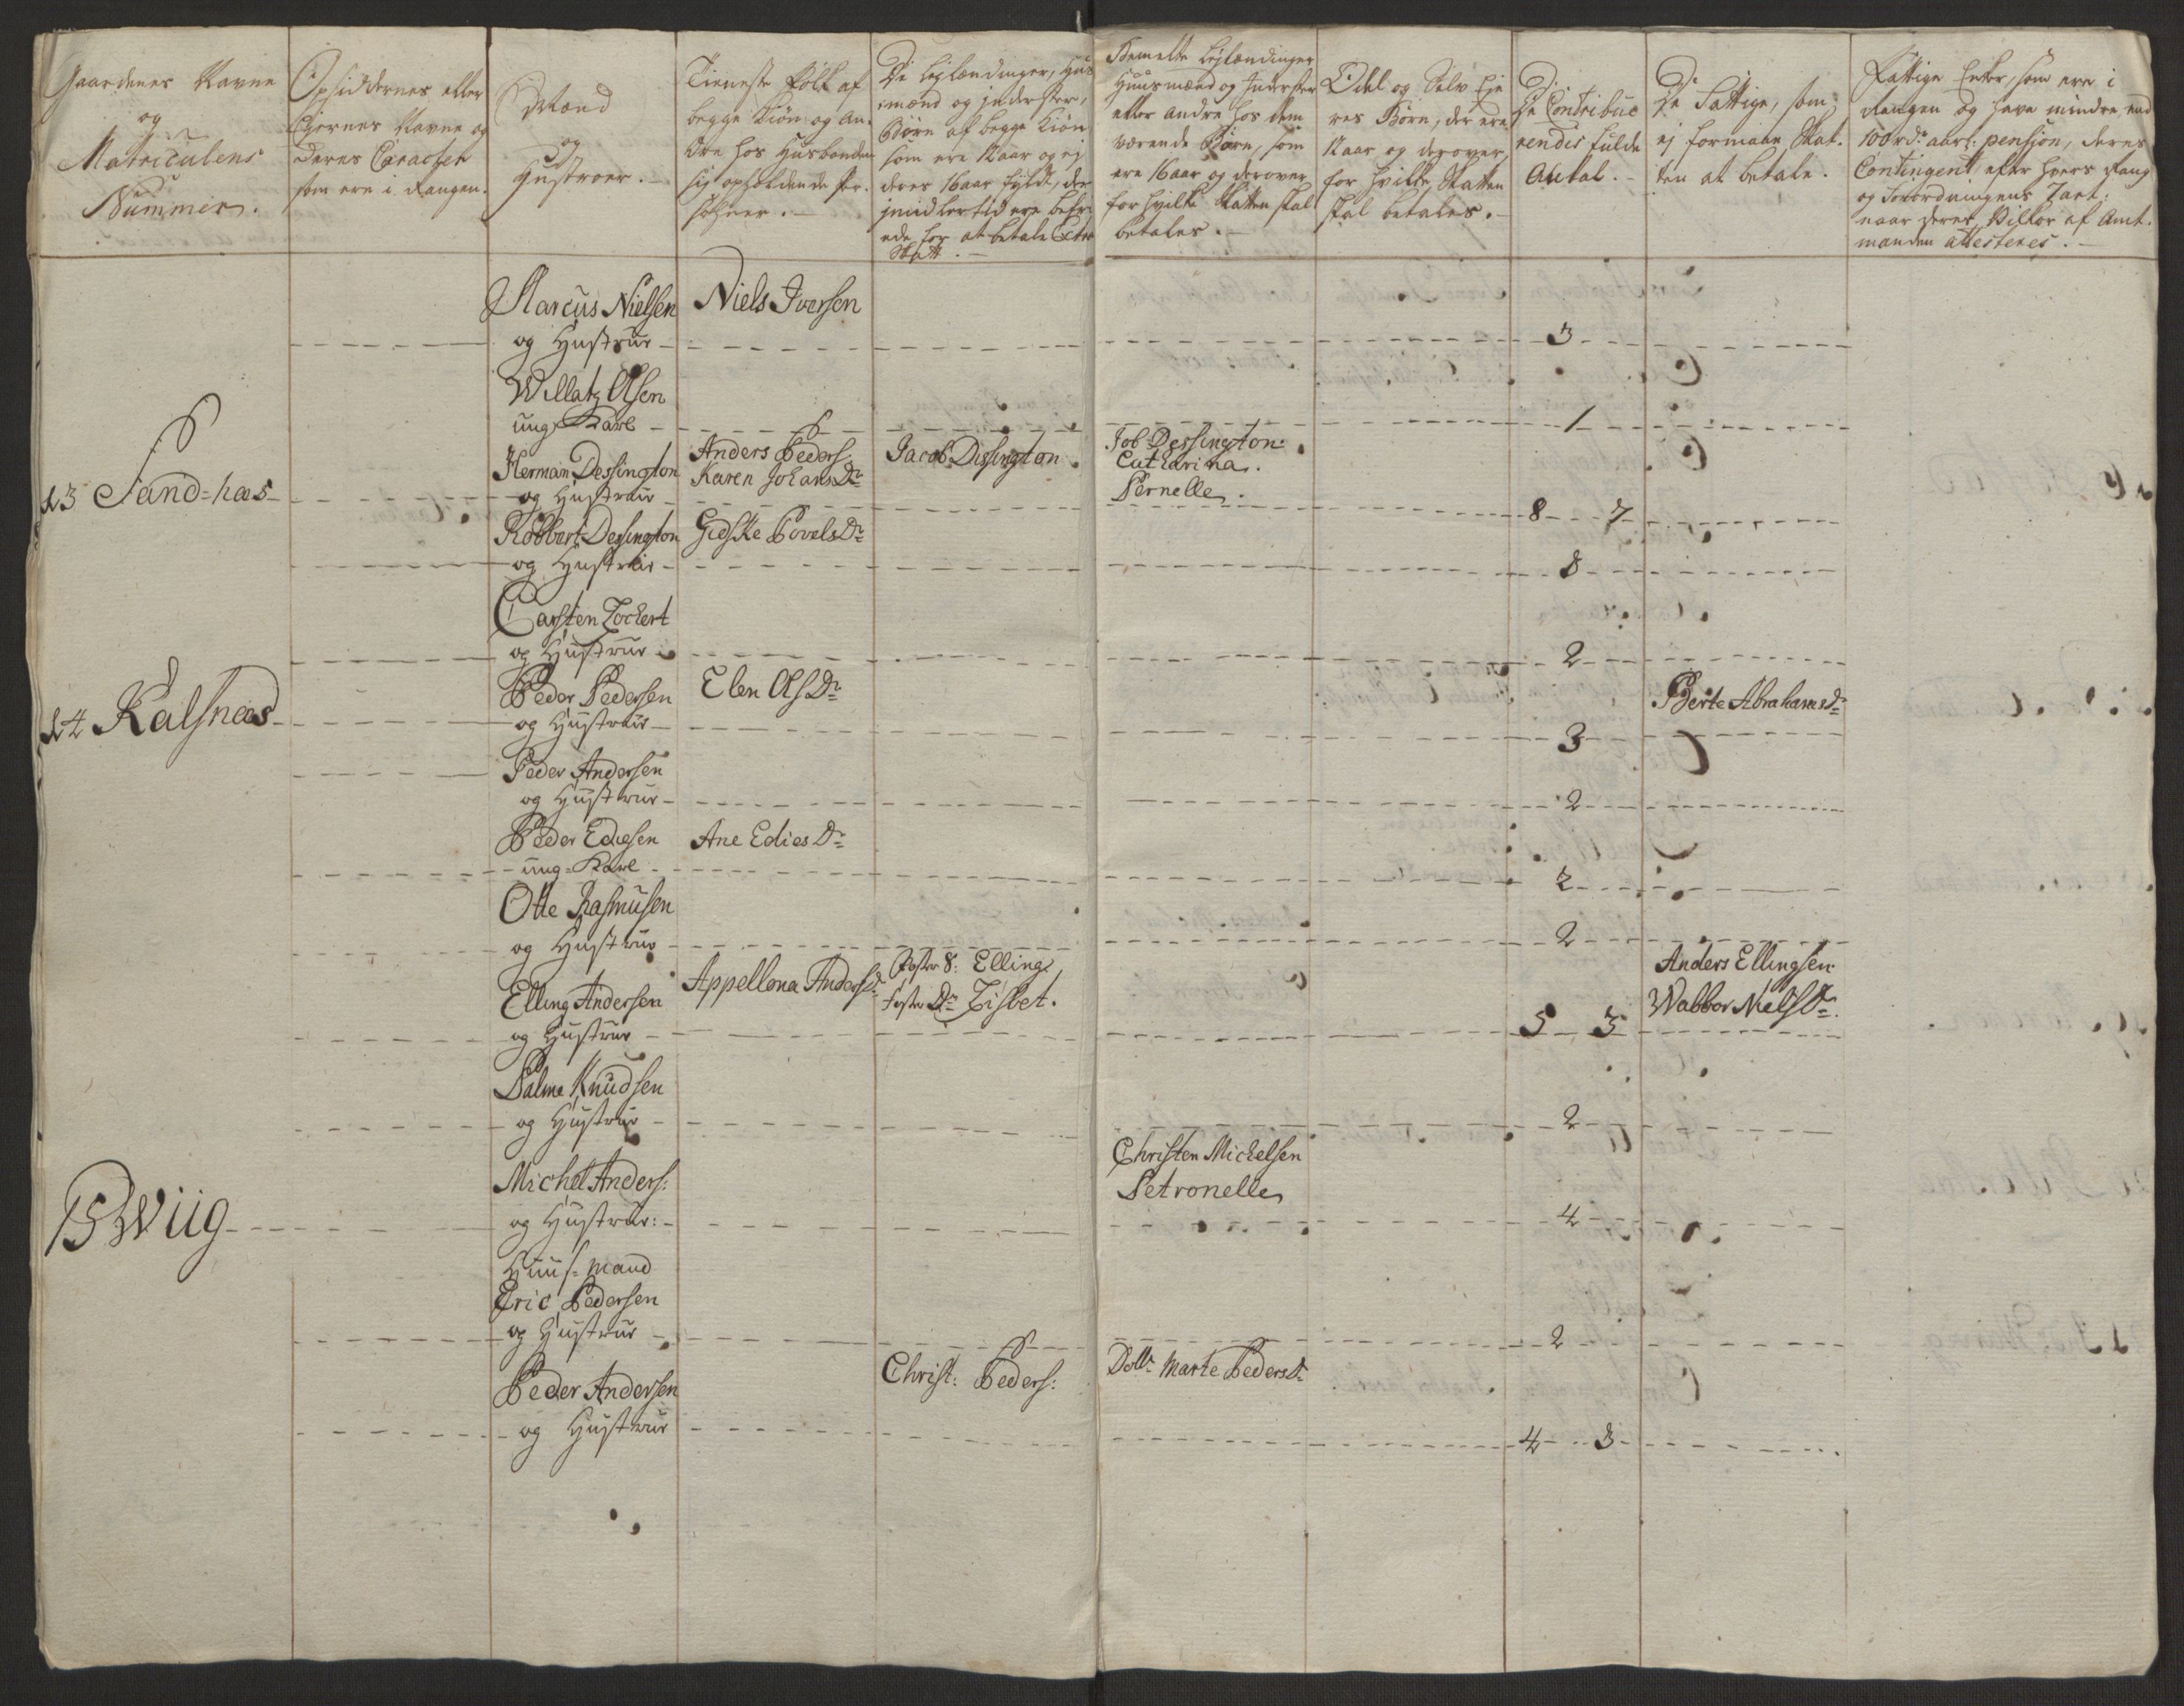 Gaardenes Navne
og
Matriculens
Nummer.
Opsiddernes eller
Ejernes Navne og
deres Caracter
som ere i Rangen.
Mænd
og
Hustroer.
Tieneste folk af
begge Kiön og an-
dre hos Husbonden
sig opholdende Per-
sohner.
De Leylændinger, Huus
mænd og Inderster,
Börn af begge Kiön
som ere 12 aar og ej
deres 16 aar fyldt, der
imidlertid ere befri-
ede for at betale Extra
Skatt.
Bemelte Leylændinger
Huusmænd og Inderster
eller andre hos dem
værende Börn, som
ere 16 aar og derover
for hvilke Skatten skal
betales.
Odel og Selv Eje
res Börn, der ere
12 aar og derover
for hvilke Skatten
skal betales.
De Contribue
rendes fulde
Antal.
De Fattige, som
ej formaae Skat-
ten at betale.
Fattige Enker, som ere i
Rangen og have mindre end
100 rd aarl: pension, deres
Contingent efter hvers Rang
og Forordningens Taxt,
naar deres Vilkor af Amt-
manden attesteres.
Marcus Nielsen
og Hustrue
Niels Iversen
3
Willatz Olsen
ung Karl
1
13 Sand-hæs
Herman Dessington
og Hustrue
Anders Peders
Karen Johans Dr
Jacob Dessington
Job Dessington
Catharina
Pernelle
8 7
Robbert Dessington
og Hustrue
Gidske Povels Dr
8
Carsten Zochert
og Hustrue
2
14 Kalsnæs
Peder Pedersen
og Hustrue
Elen Ols Dr
3
Berte Abrahams Dr
Peder Andersen
og Hustrue
2
Peder Ediesen
ung-Karl
Ane Edies Dr
2
Otte Rasmusen
og Hustrue
2
Elling Andersen
og Hustrue
Appellona Anders Dr
Foster S: Elling
Foster Dr Lisbet.
5 3
Anders Ellingsen
Wabbor Niels Dr
Salme Knudsen
og Hustrue
2
15 Wiig
Michel Anders:
og Hustrue:
Christen Michelsen
Petronelle
4
Huus-mand
Eric Pedersen
og Hustrue
2
Peder Andersen
og Hustrue
Christ: Peders:
Dottr Marte Peders Dr
4 3